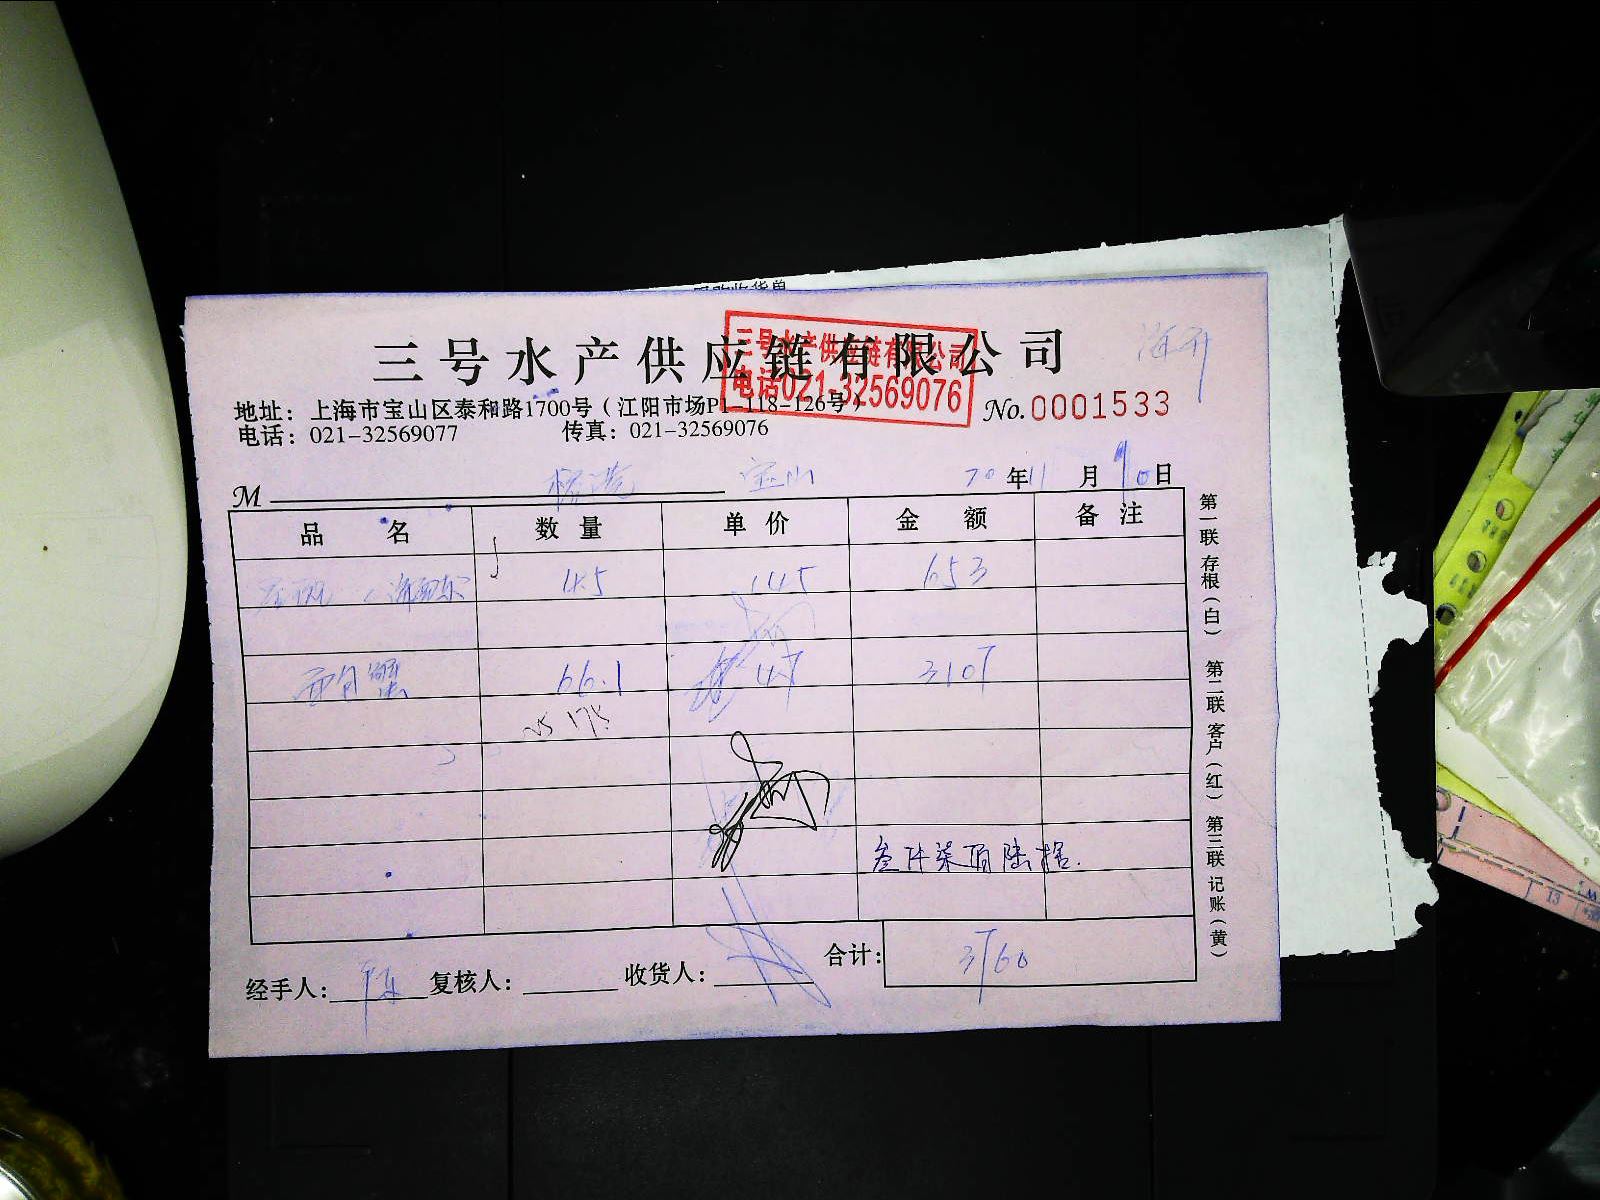 三号水产供应链有限公司
三号水产供应链有限公司
电话021-32569076
地址：上海市宝山区泰和路1700号（江阳市场P1-118-126号）
No.0001533
电话：021-32569077 传真：021-32569076
M 宝山 年11月 日
品 名 数 量 单 价 金 额 备 注
4.5 145 653
面包蟹 66.1 47 3107
25 17.5
叁仟柒佰陆拾.
合计： 3760
经手人： 复核人： 收货人：
第一联 存根（白） 第二联 客户（红） 第三联 记账（黄）